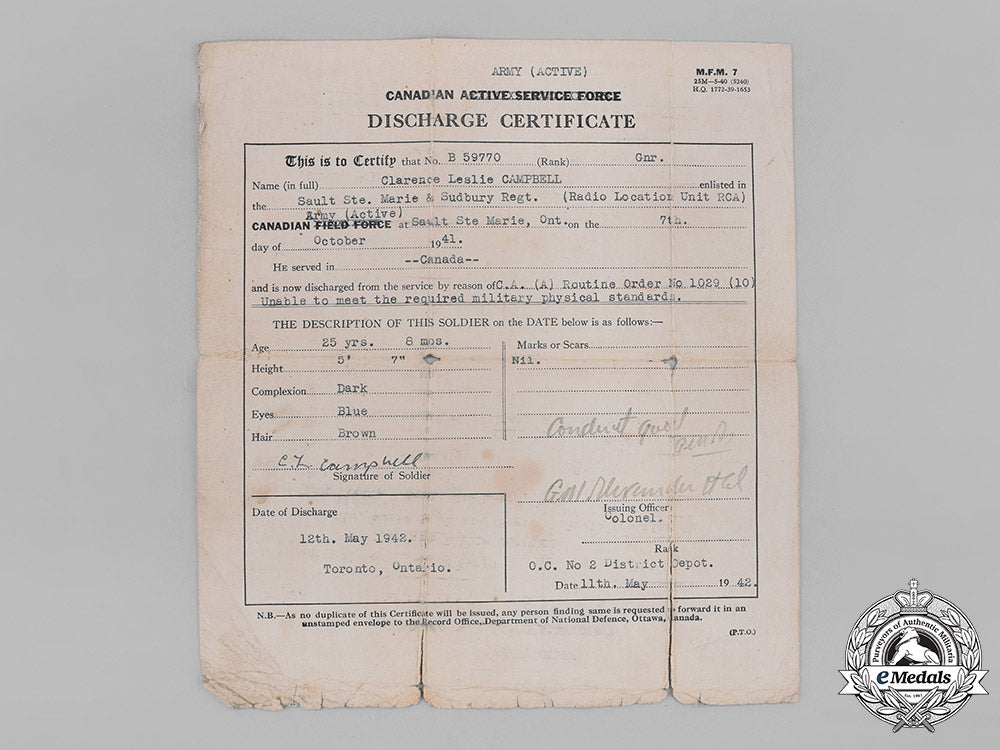 ARMY (ACTIVE)
M.F.M. 7
25M—5-40 (5240)
H.Q. 1772-39-1653
CANADIAN ACTIVE SERVICE FORCE
DISCHARGE CERTIFICATE
This is to Certify that No. B 59770 (Rank) Gnr.
Name (in full) Clarence Leslie CAMPBELL enlisted in
the Sault Ste. Marie & Sudbury Regt. (Radio Location Unit RCA)
Army (Active)
CANADIAN FIELD FORCE at Sault Ste Marie, Ont. on the 7th.
day of October 1941.
HE served in --Canada--
and is now discharged from the service by reason of C.A. (A) Routine Order No 1029 (10)
Unable to meet the required military physical standards.
THE DESCRIPTION OF THIS SOLDIER on the DATE below is as follows:—
Age 25 yrs. 8 mos.
Height 5' 7"
Complexion Dark
Eyes Blue
Hair Brown
C L Campbell
Signature of Soldier
Marks or Scars
Nil.
Conduct good
Issuing Officer
Colonel.
Rank
O.C. No 2 District Depot.
Date 11th. May 1942.
Date of Discharge
12th. May 1942.
Toronto, Ontario.
N.B.—As no duplicate of this Certificate will be issued, any person finding same is requested to forward it in an
unstamped envelope to the Record Office, Department of National Defence, Ottawa, Canada.
(P.T.O.)
Purveyors of Authentic Militaria
eMedals